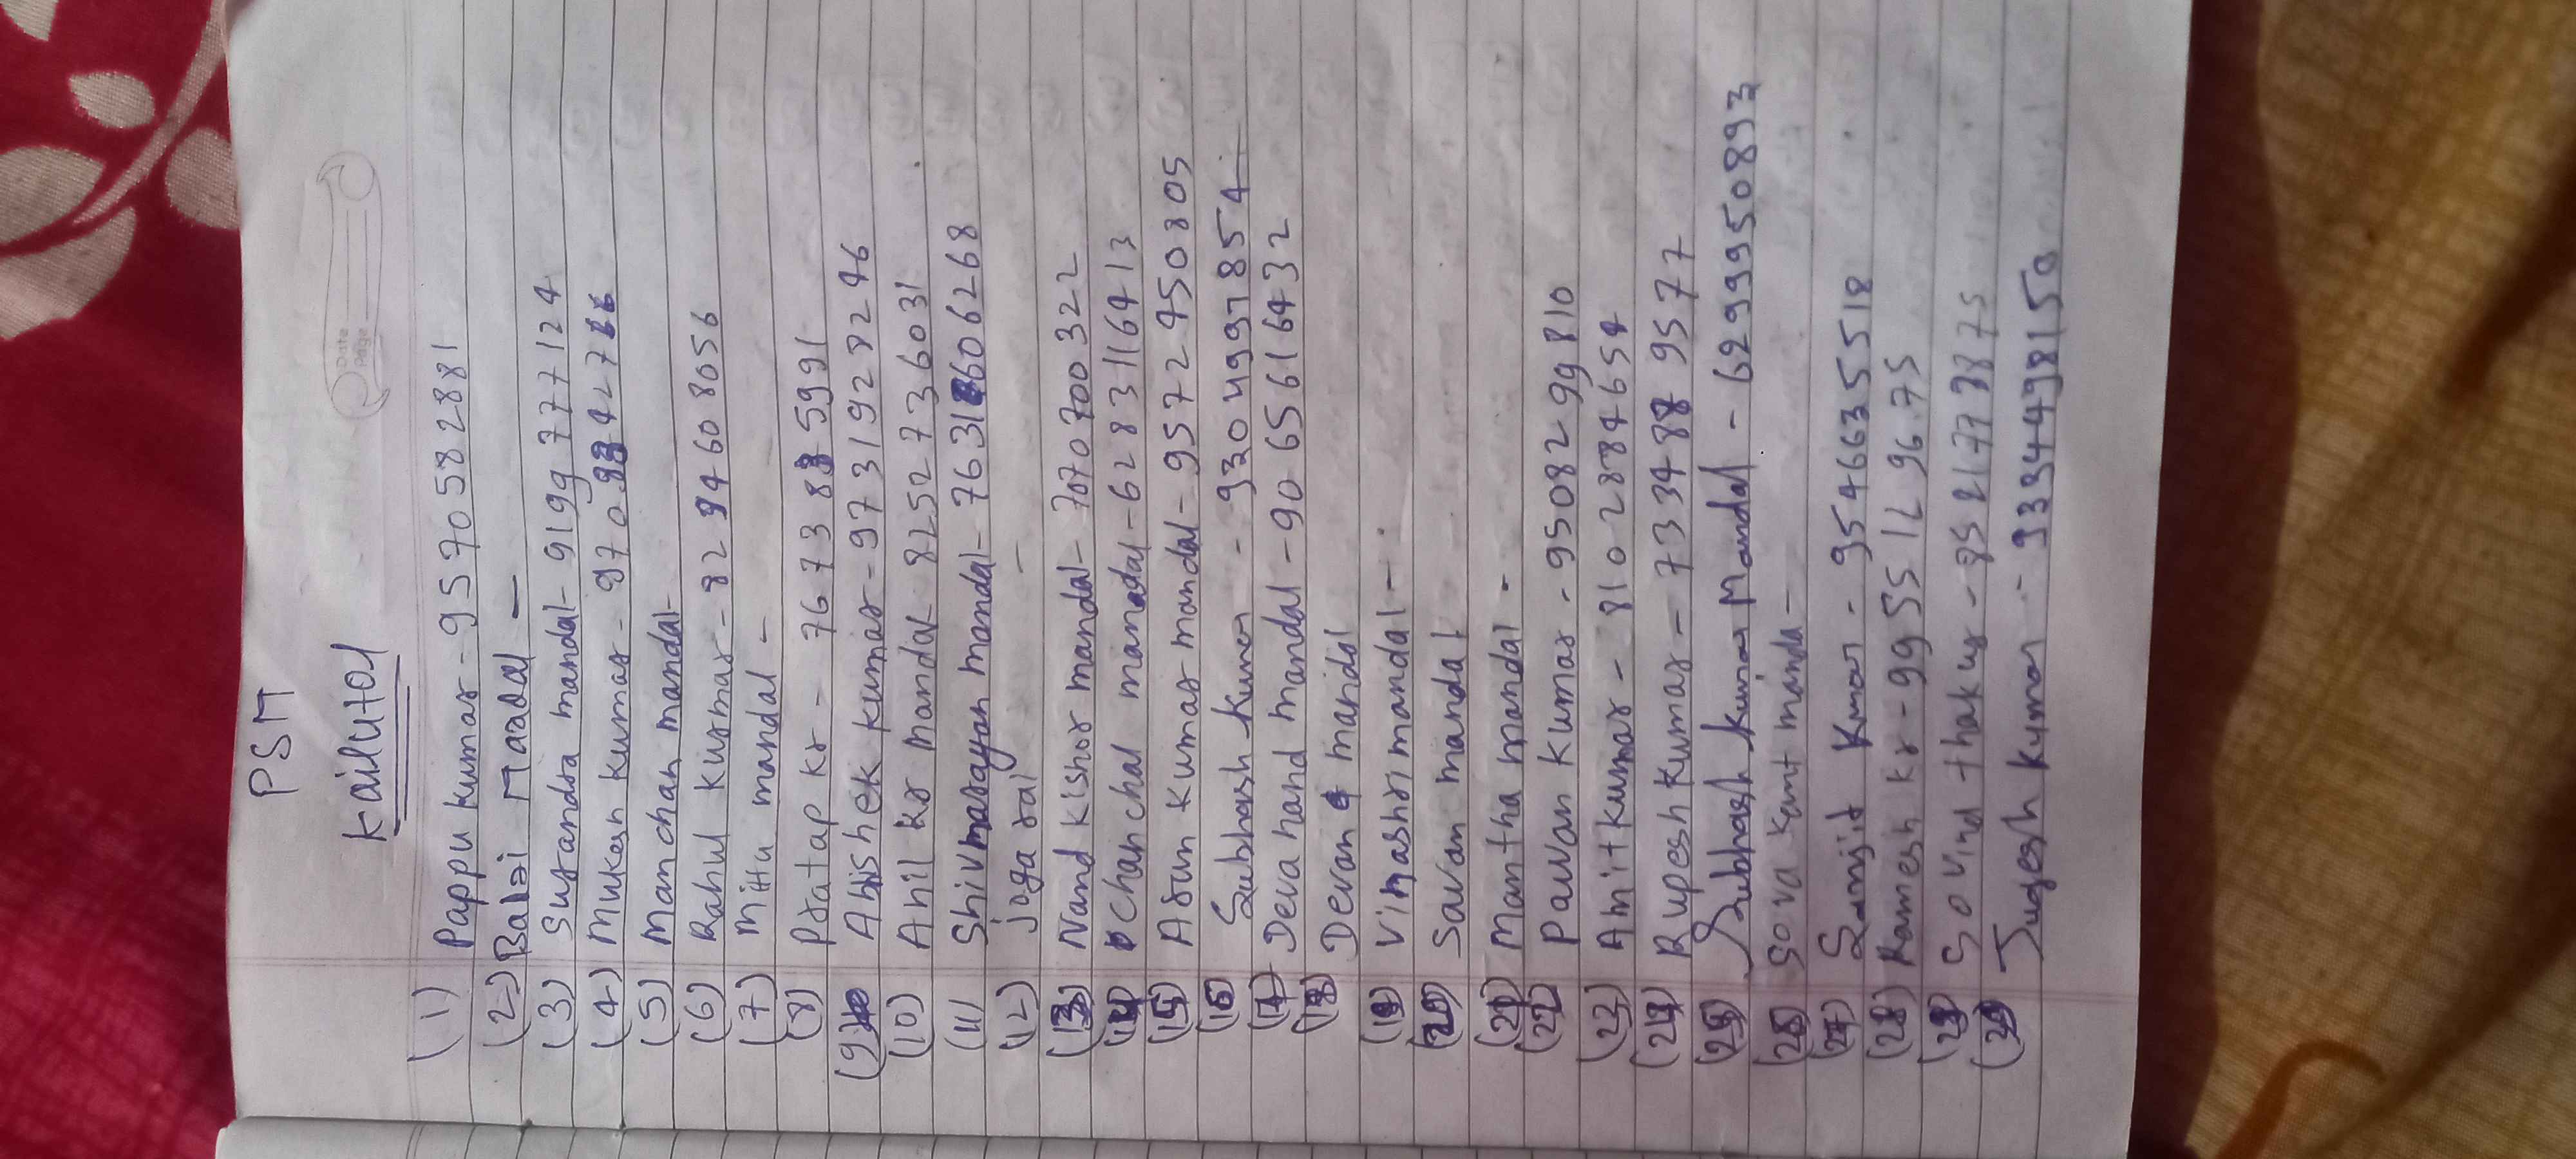 PSM
kailutol
Date
Page
(1) Pappu kumar - 9570582881
(2) Balai Mandal -
(3) Surandra mandal - 9199777124
(4) Mukesh kumar -
(5) Manchan mandal -
(6) Rahul kurmar - 8294608056
(7) mittu mandal -
(8) Pratap kr - 7673885991
(9) Abishek kumar - 9731928246
(10) Anil kr mandal 8252736031
(11) Shivnarayan mandal - 7631606268
(12) joga rai -
(13) Nand kishor mandal - 7070700322
(14) chanchal manadal - 6283116413
(15) Arun kumar mandal - 9572450805
(16) Subhash kumar - 9304997854
(17) Devanand mandal - 9065616432
(18) Devan mandal
(19) Vimashri mandal -
(20) Savan mandal
(21) Mantha mandal -
(22) Pawan kumar - 9508299810
(23) Amit kumar - 8102884654
(24) Rupesh kumar - 7334889577
(25) Subhash kumar Mandal - 6299950893
(26) Sova kant manda -
(27) Sanjit Kumar - 9546635518
(28) Ramesh kr - 9955129675
(29) Govind thakur - 8521779875
(30) Jugesh kumar - 9334498150